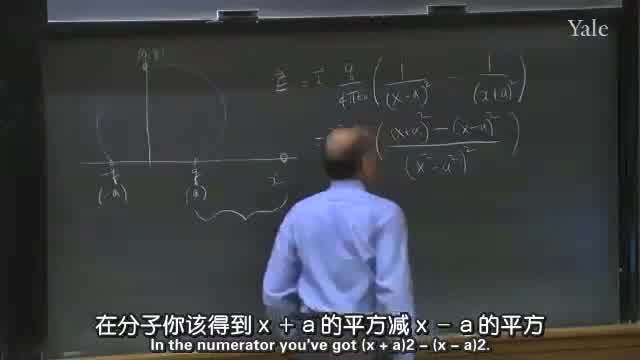 Yale
E = i q/4πε₀ ( 1/(x-a)² - 1/(x+a)² )
( (x+a)² - (x-a)² / (x² - a²)² )
q
(-a) (a) x
在分子你该得到 x + a 的平方减 x - a 的平方
In the numerator you've got (x + a)2 - (x - a)2.